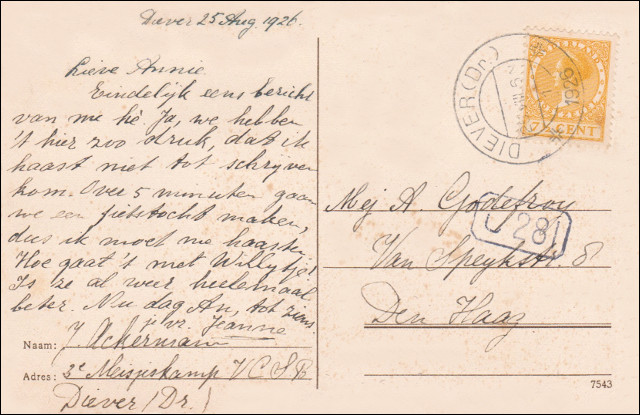 Diever 25 Aug. 1926.
Lieve Annie
Eindelijk eens bericht
van me hè Ja, we hebben
't hier zoo druk, dat ik
haast niet tot schrijven
kom. Over 5 minuten gaan
we een fietstocht maken,
dus ik moet me haasten
Hoe gaat 't met Willytje!
Is ze al weer heelemaal
beter. Nu dag An, tot ziens
je vr. Jeanne
Naam: J Ackermann
Adres: 3e Meisjeskamp V.C.S.B
Diever (Dr.)
DIEVER (Dr.)
1926
7½ CENT
Mej A. Godefroy
J 28
Van Speykstr. 8
Den Haag
7543